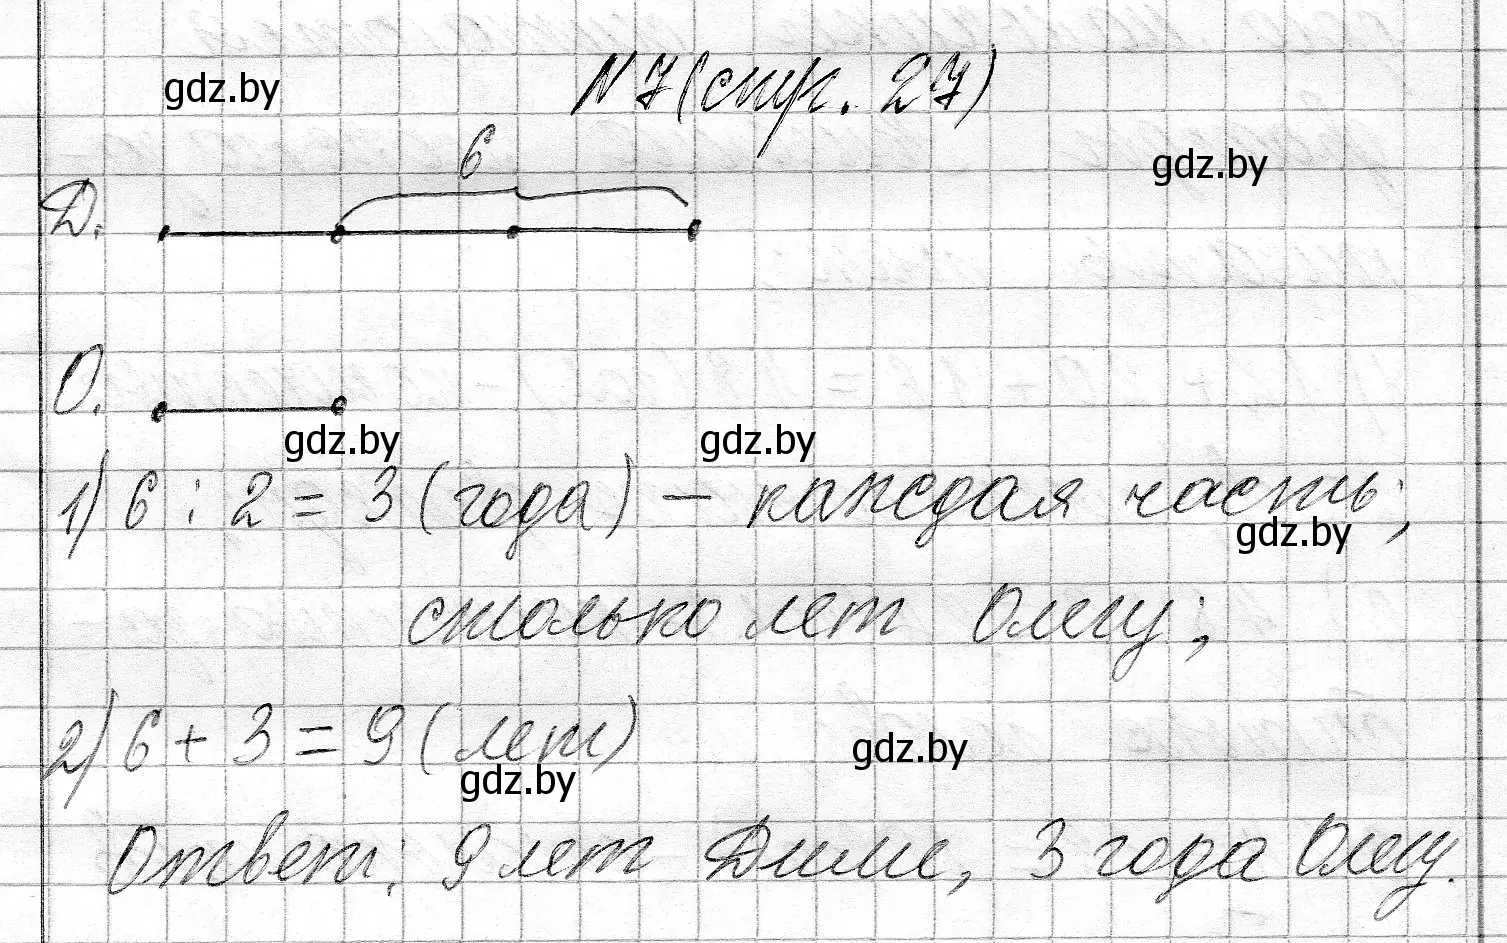 N7 (стр. 27)
gdz.by
gdz.by
6
Д.
О.
gdz.by
gdz.by
1) 6 : 2 = 3 (года) – каждая часть;
gdz.by
столько лет Олегу;
2) 6 + 3 = 9 (лет)
gdz.by
gdz.by
Ответ: 9 лет Диме, 3 года Олегу.